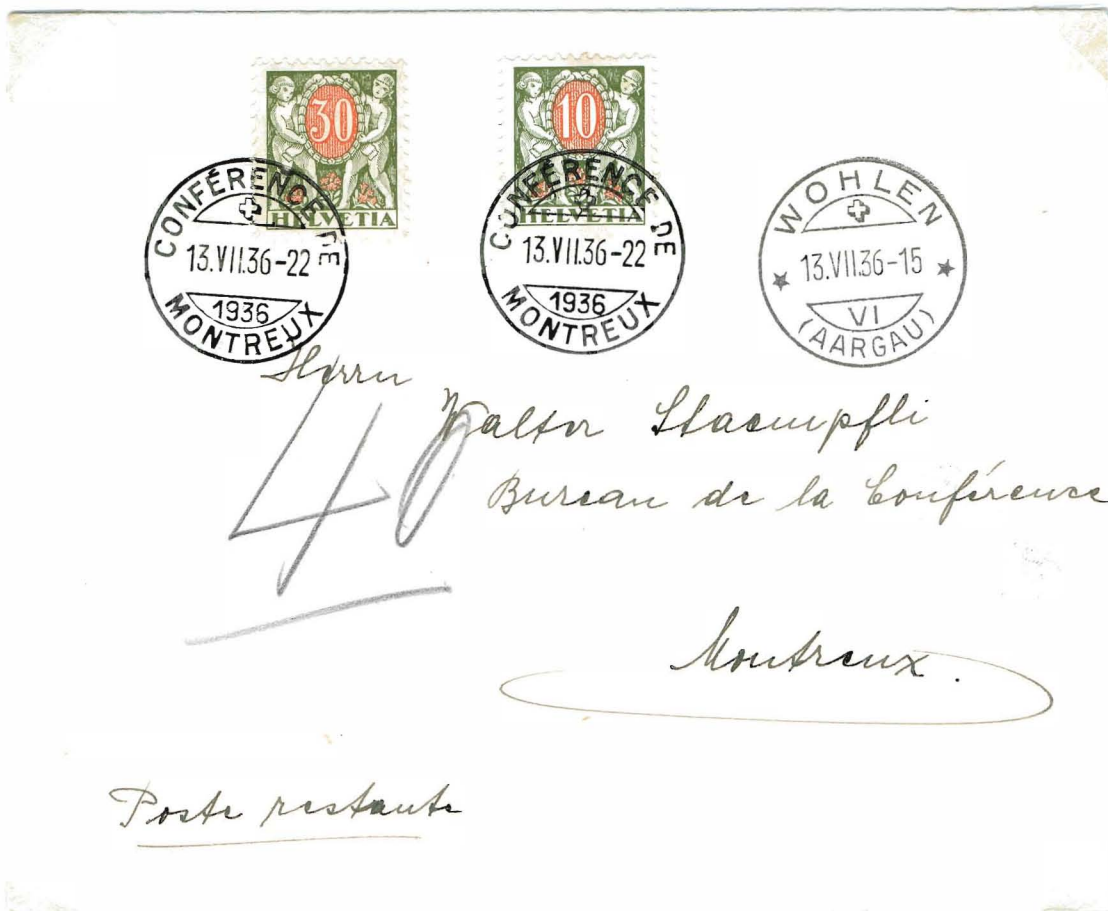 30
HELVETIA
10
HELVETIA
CONFÉRENCE DE
13.VII.36-22
1936
MONTREUX
CONFÉRENCE DE
13.VII.36-22
1936
MONTREUX
WOHLEN
13.VII.36-15
VI
(AARGAU)
Herrn
Walter Staempfli
Bureau de la Conférence
40
Montreux.
Poste restante